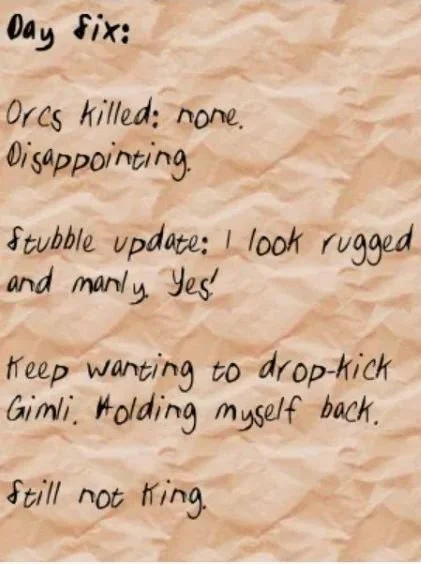 Day Six:
Orcs killed: none.
Disappointing.
Stubble update: I look rugged
and manly. Yes!
Keep wanting to drop-kick
Gimli. Holding myself back.
Still not King.